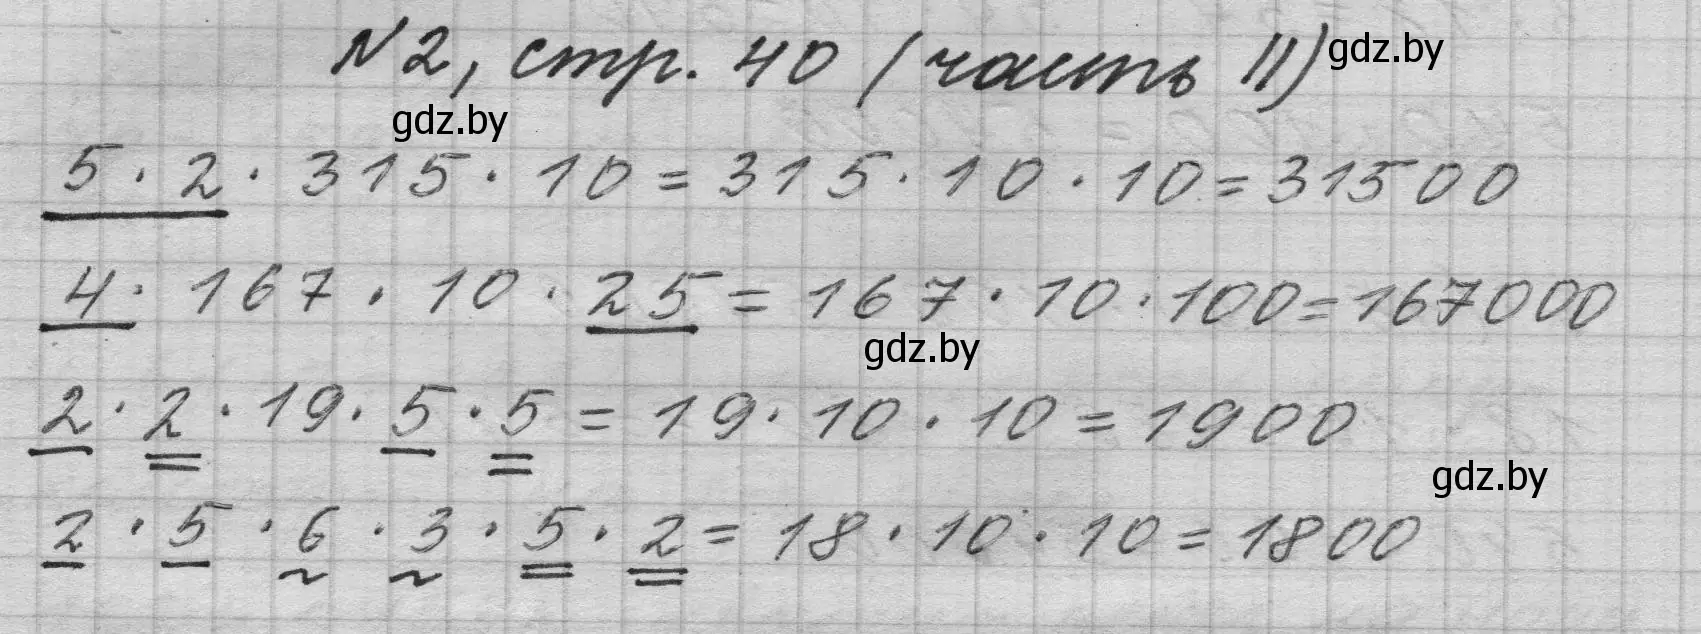 №2, стр. 40 (часть II) gdz.by
gdz.by
5 · 2 · 315 · 10 = 315 · 10 · 10 = 31500
4 · 167 · 10 · 25 = 167 · 10 · 100 = 167000
gdz.by
2 · 2 · 19 · 5 · 5 = 19 · 10 · 10 = 1900
gdz.by
2 · 5 · 6 · 3 · 5 · 2 = 18 · 10 · 10 = 1800